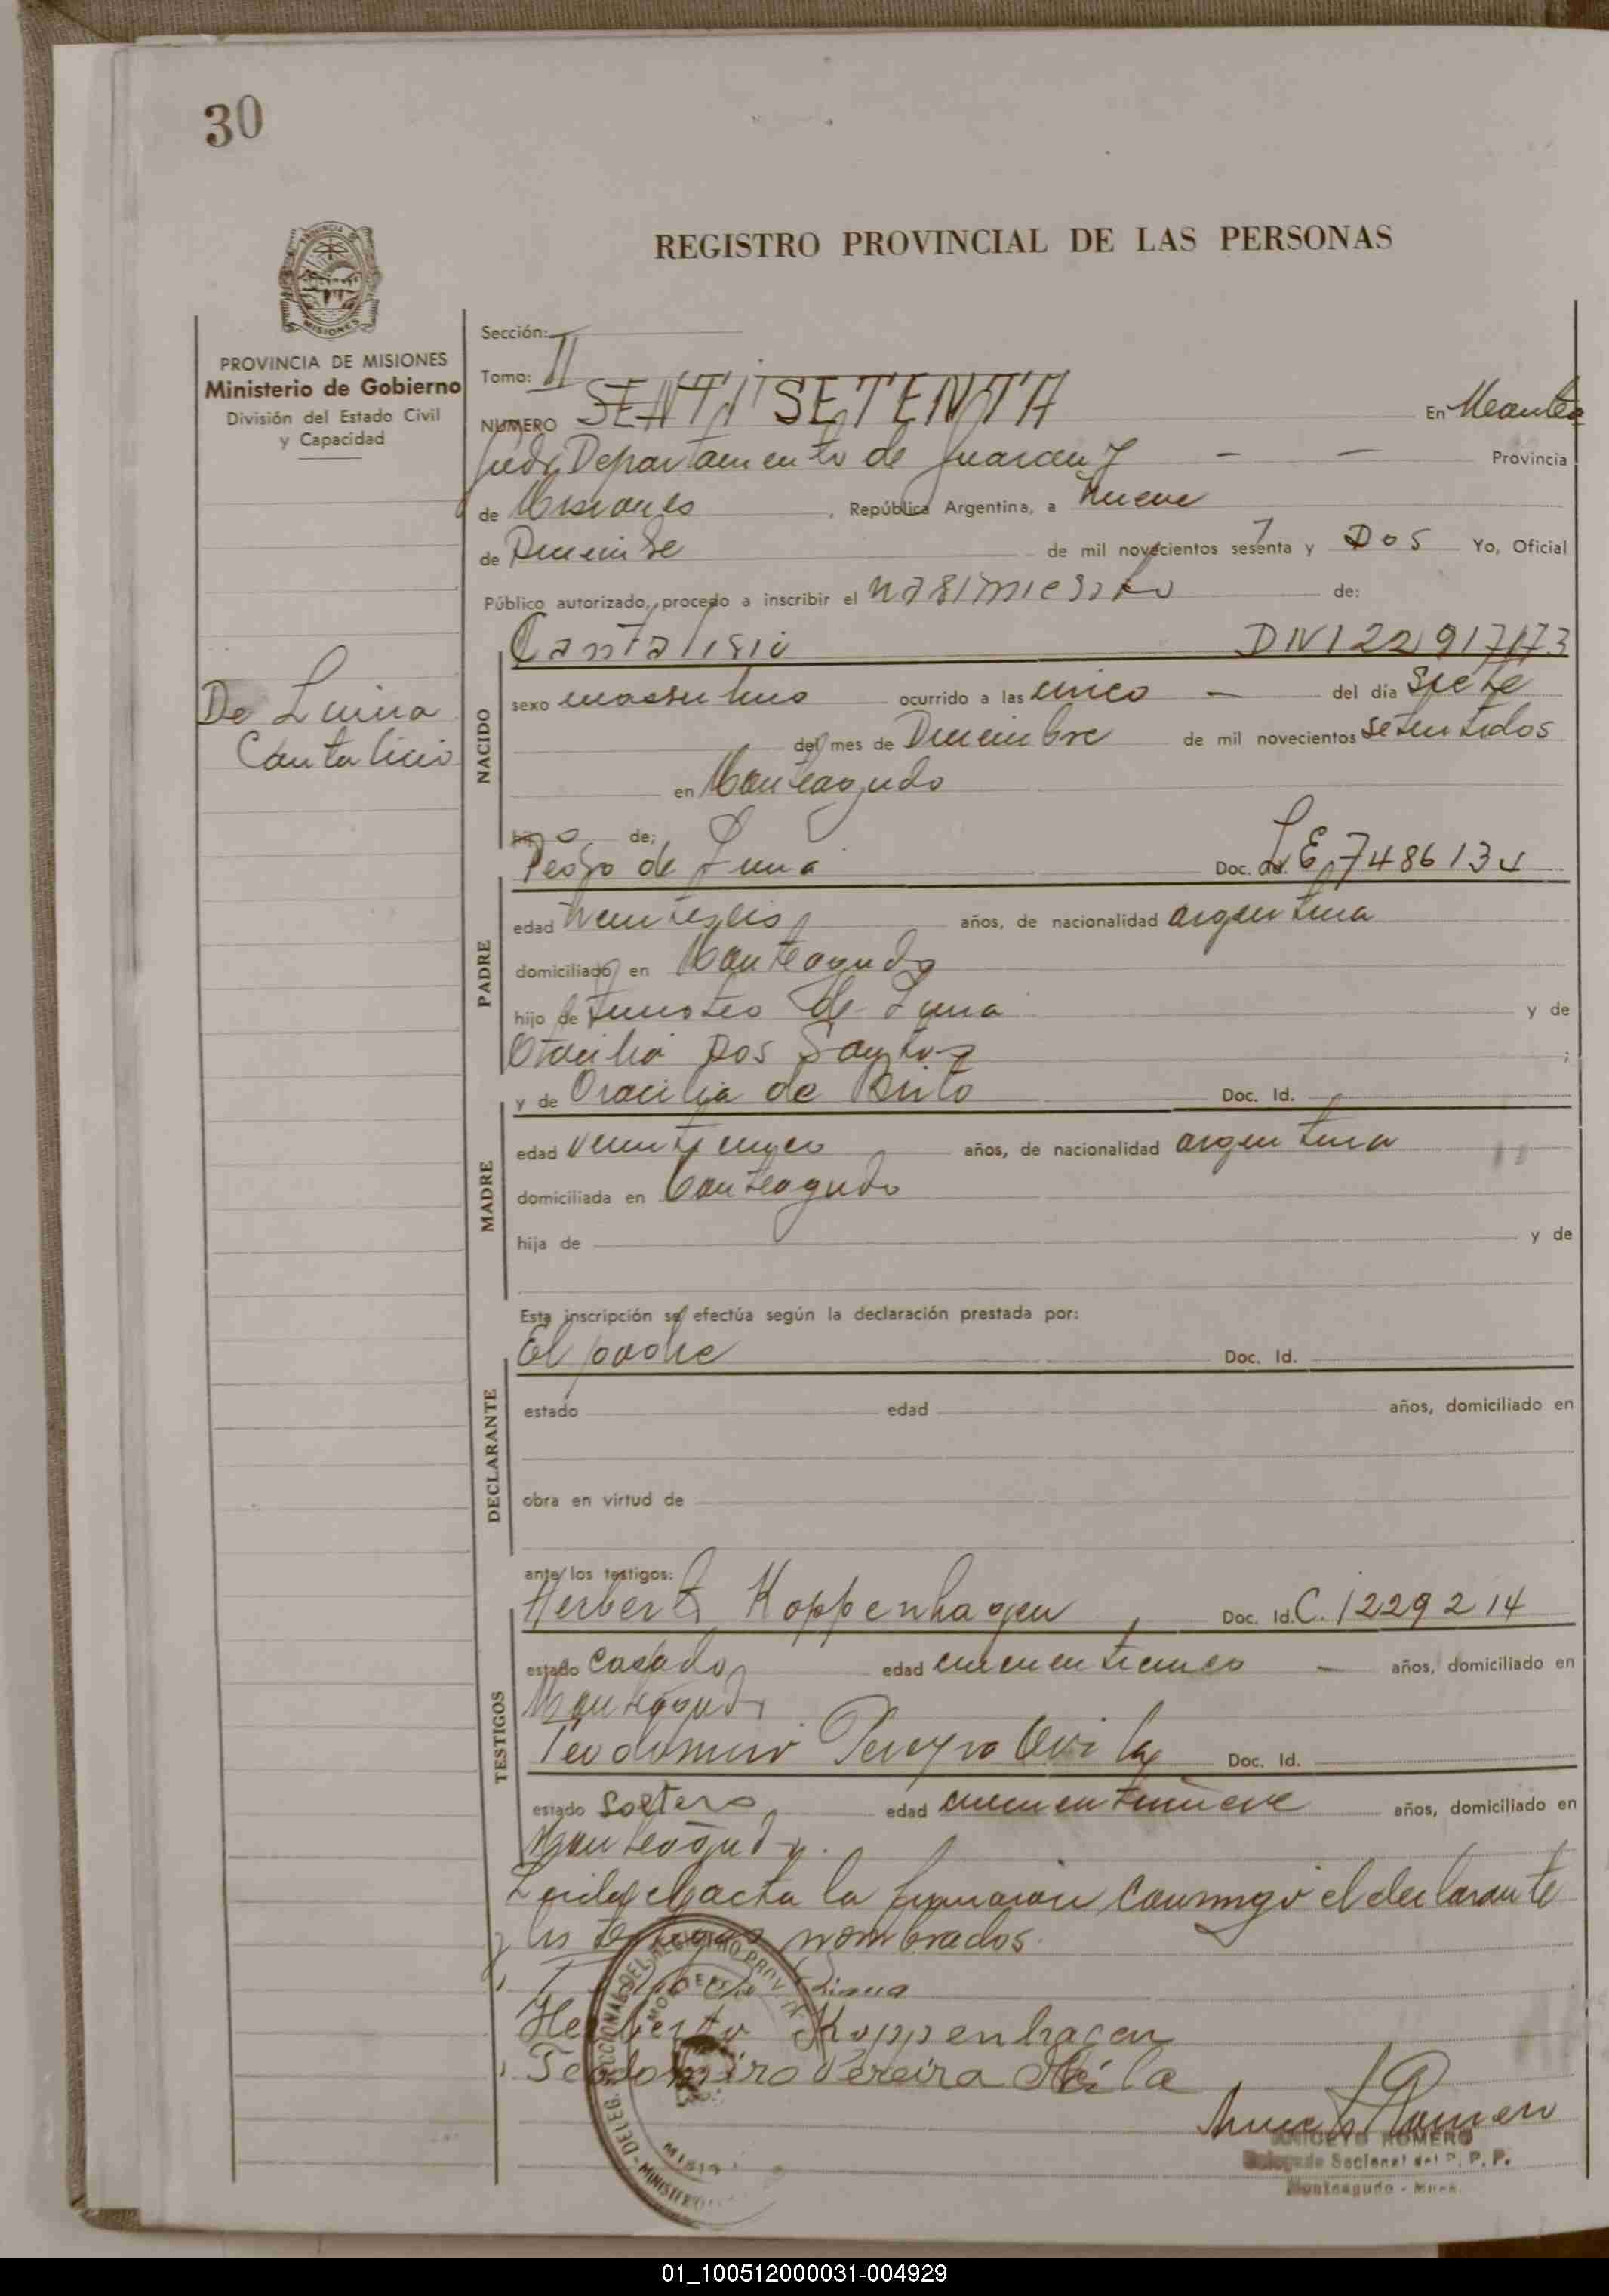 30
REGISTRO PROVINCIAL DE LAS PERSONAS
PROVINCIA DE
MISIONES
PROVINCIA DE MISIONES
Ministerio de Gobierno
División del Estado Civil
y Capacidad
De Lima
Cantalicio
Sección:
Tomo: II
NUMERO SENTI SETENTA En Montea
gudo, Departamento de Guarany — — Provincia
de Misiones , República Argentina, a nueve
de Diciembre de mil novecientos sesenta y DOS Yo, Oficial
Público autorizado, procedo a inscribir el nasimiento de:
Cantalisio DNI 22917173
NACIDO
sexo masculino ocurrido a las cinco — del día siete
del mes de Diciembre de mil novecientos setentidos
en Monteagudo
hijo de:
Pedro de Lima Doc. Id. LE 7486134
PADRE
edad años, de nacionalidad argentina
domiciliado en Monteagudo
hijo de Timoteo de Lima y de
Otacilia Dos Santos ;
y de Oracilia de Brito Doc. Id.
MADRE
edad veinticinco años, de nacionalidad argentina
domiciliada en Monteagudo
hija de y de
Esta inscripción se efectúa según la declaración prestada por:
El padre Doc. Id.
DECLARANTE
estado edad años, domiciliado en
obra en virtud de
ante los testigos:
Herberto Koppenhagen , Doc. Id. C. 1229214
TESTIGOS
estado casado edad cincuenticinco — años, domiciliado en
Monteagudo
Teodomiro Pereyra Avila Doc. Id.
estado soltero edad cincuentinueve años, domiciliado en
Monteagudo.
Leida el acta la firmaron conmigo el declarante
y los testigos nombrados.
Lima
Herberto Koppenhagen
Teodomiro Pereira Avila
DELEG. SECCIONAL DEL REGISTRO PROV.
MINISTERIO
ANICETO ROMERO
Delegado Seccional del R. P. P.
Monteagudo - Mnes.
01_100512000031-004929